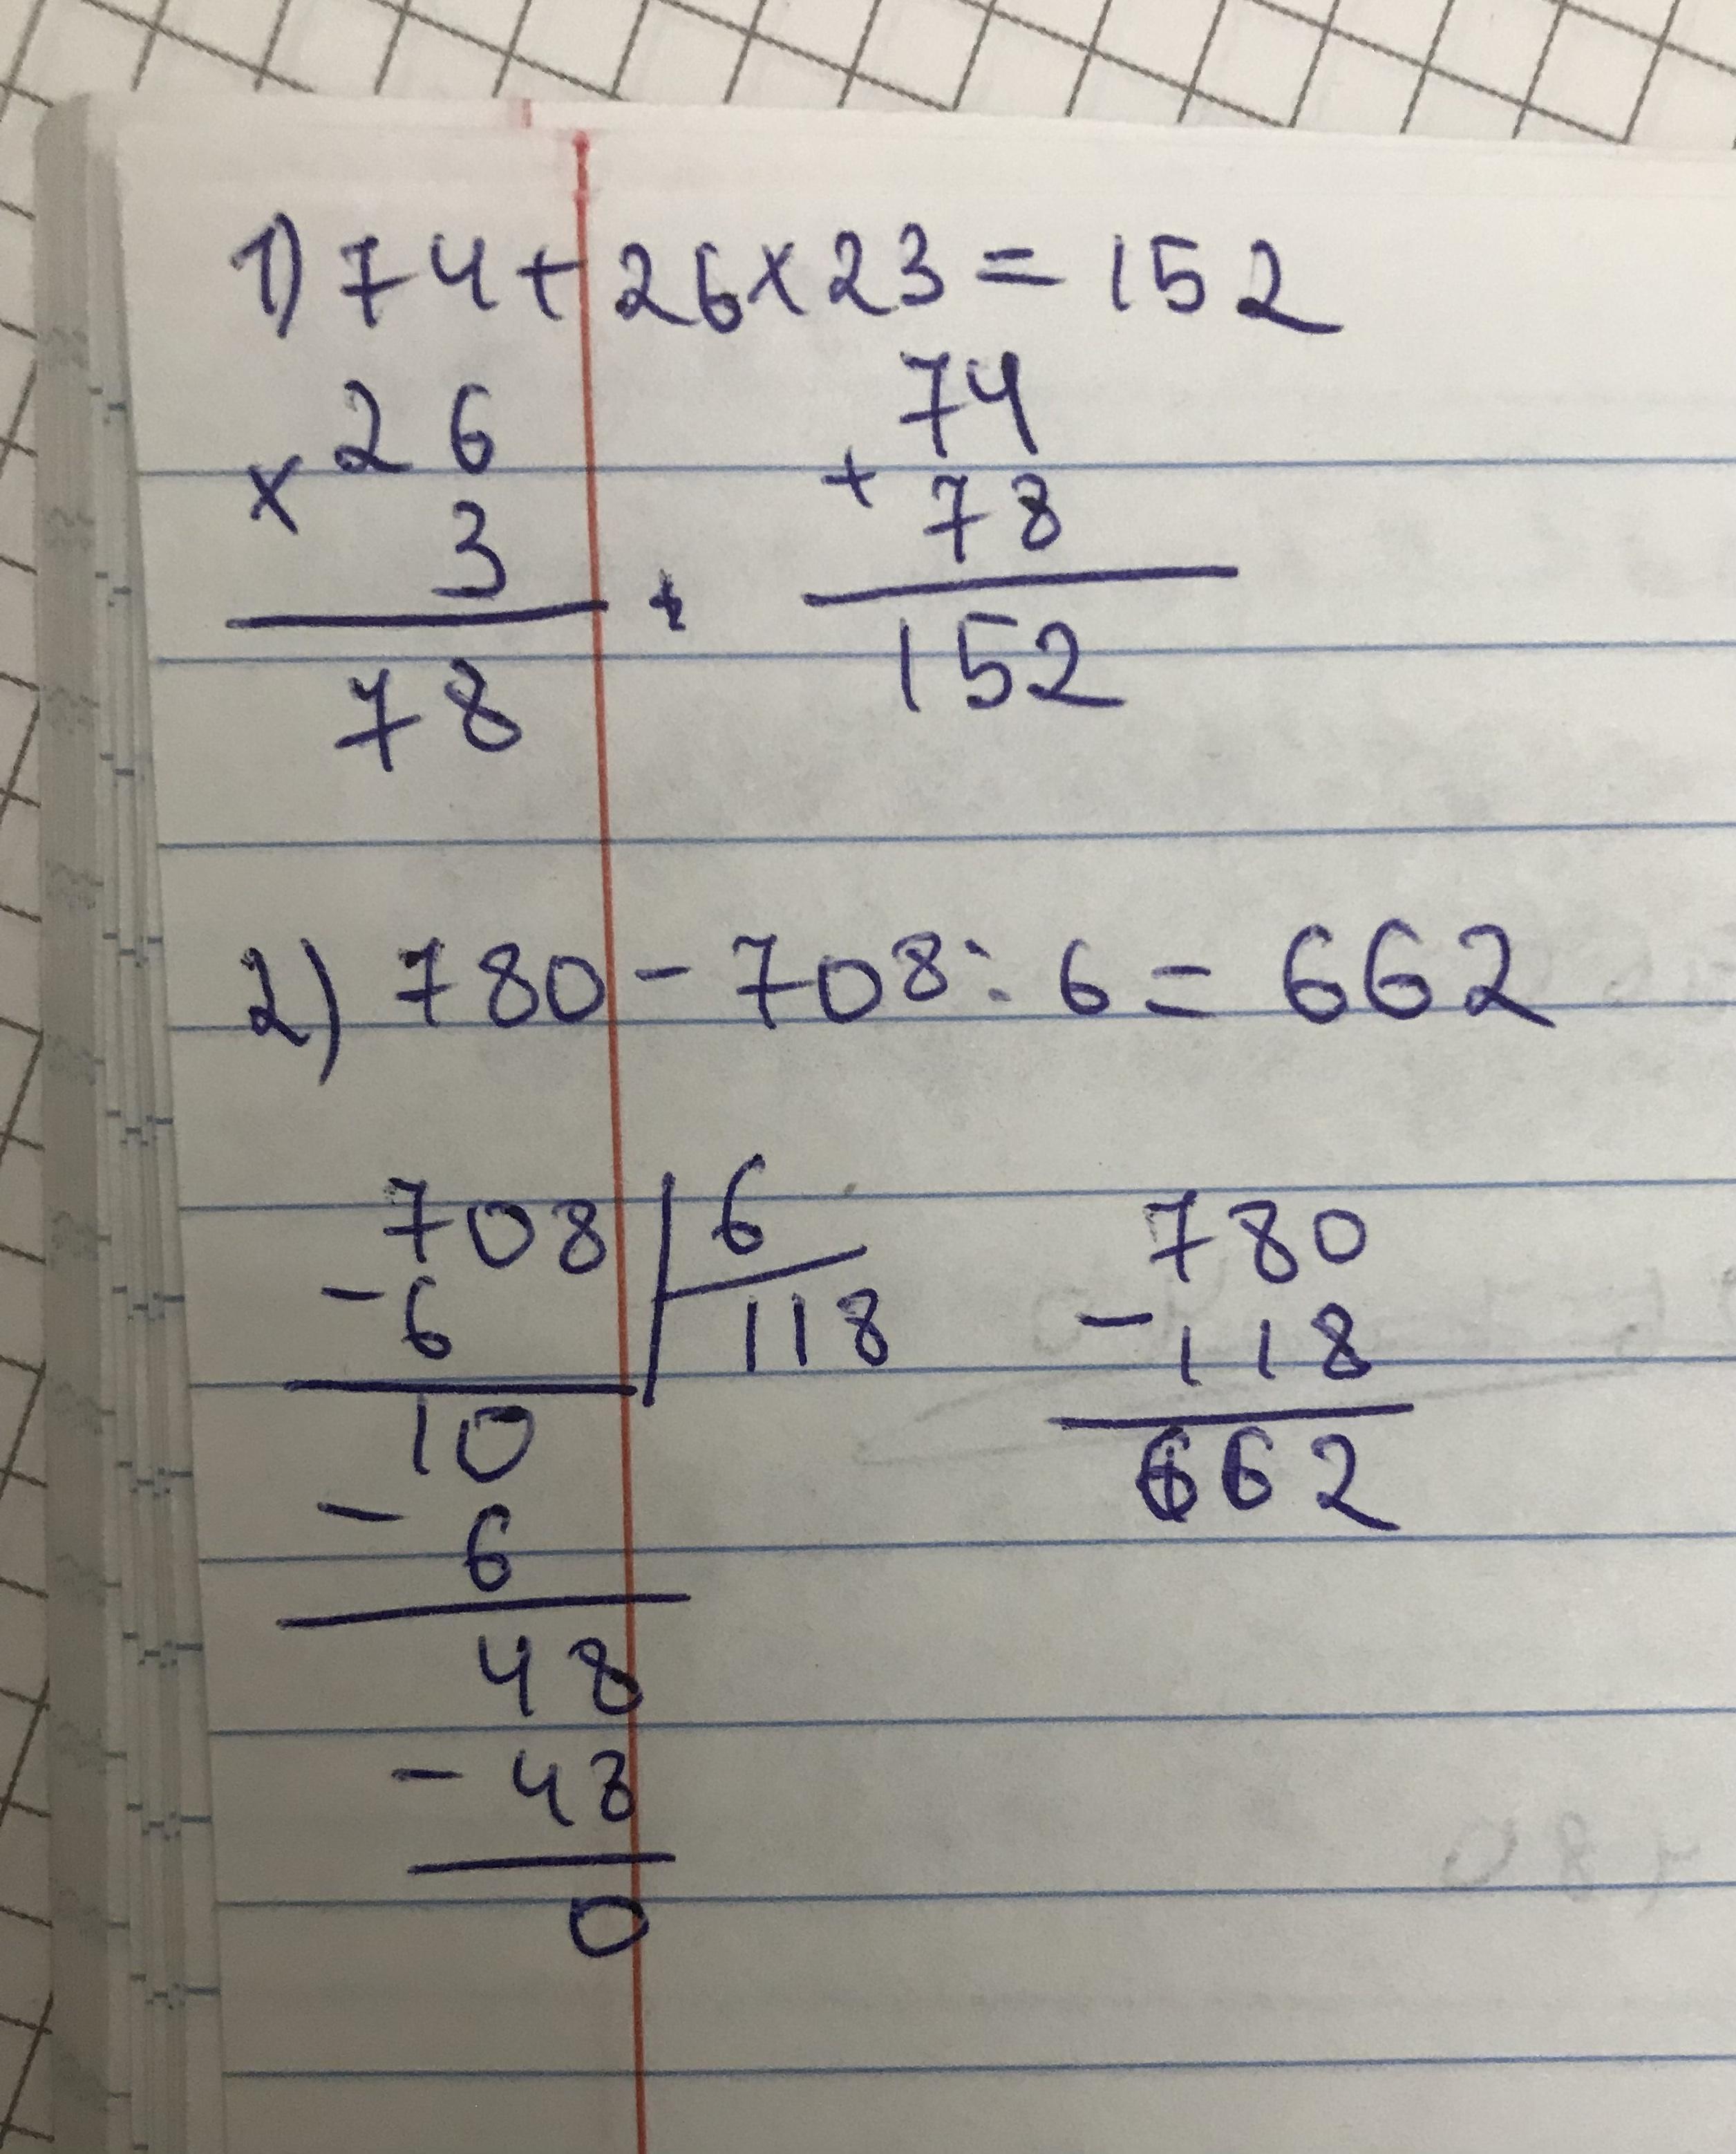 1) 74 + 26 x 23 = 152
26
x 3
78
74
+ 78
152
2) 780 - 708 : 6 = 662
708 | 6
- 6 118
10
- 6
48
- 48
0
780
- 118
662